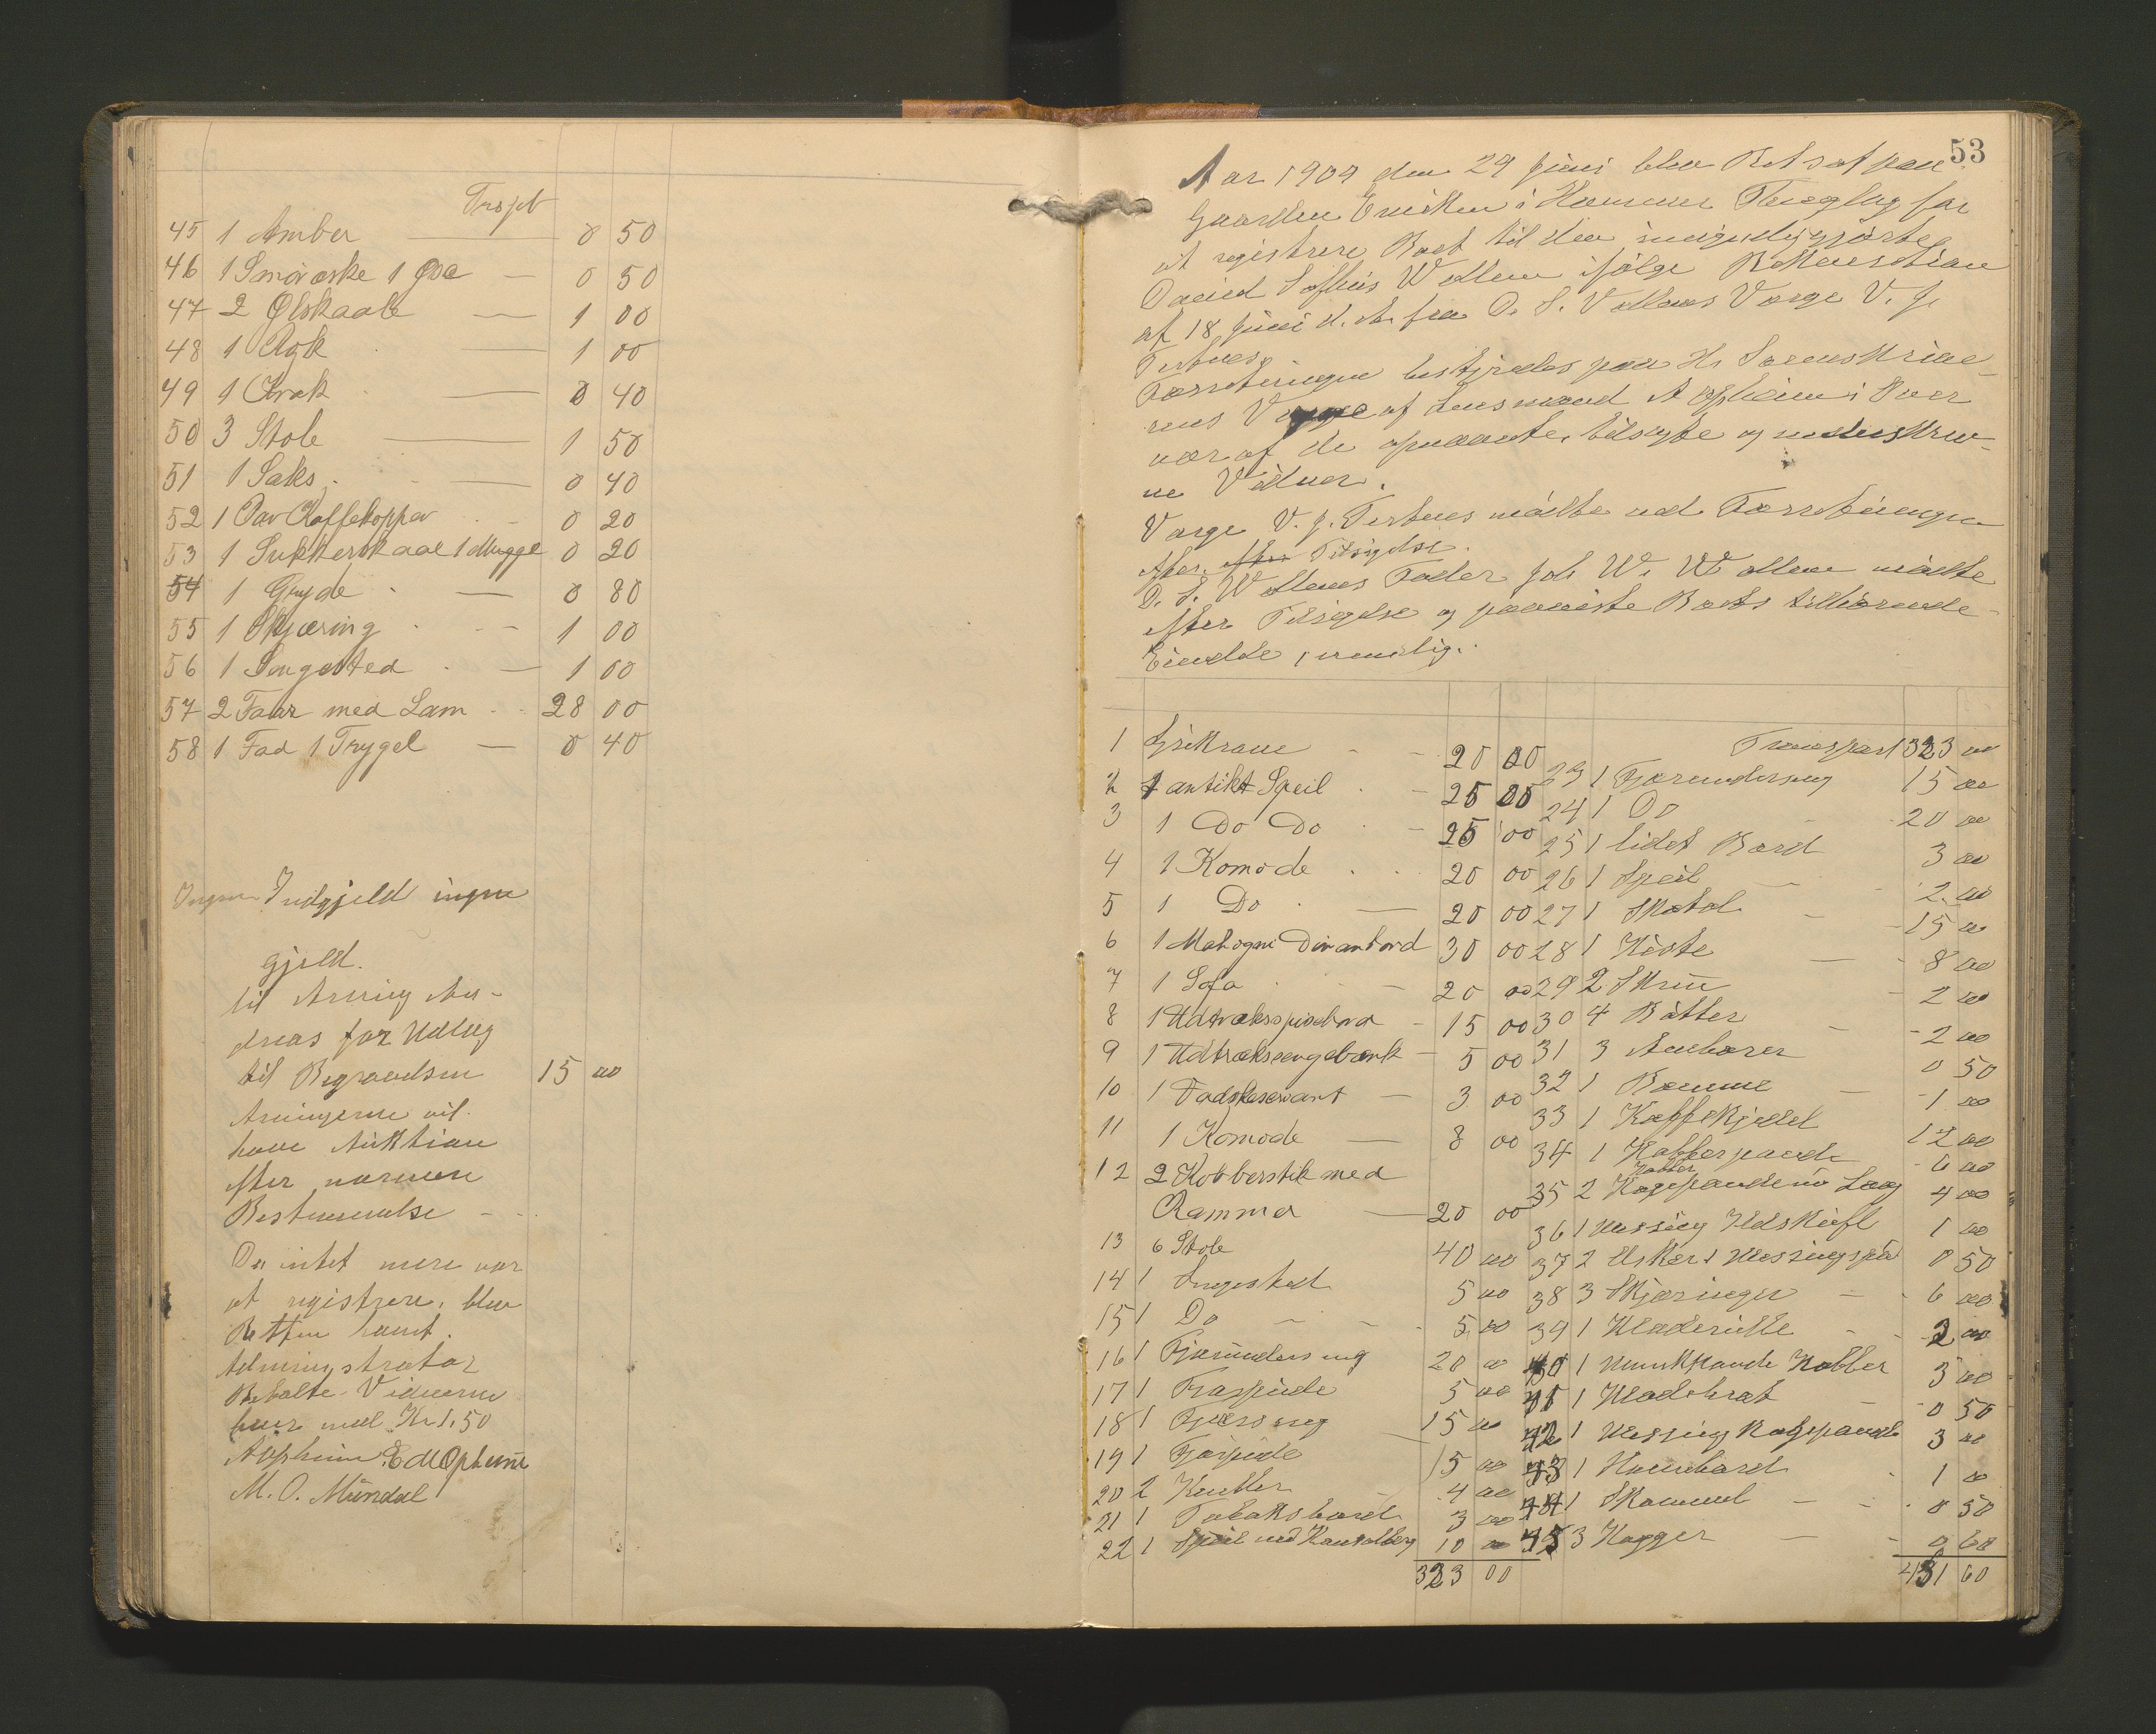 Trspt
45 1 Amber 0 50
46 1 Smöræske 1 Øse 0 50
47 2 Ølskaale 1 00
48 1 Agk 1 00
49 1 Krak 0 40
50 3 Stole 1 50
51 1 Saks 0 40
52 1 Par Kaffekopper 0 20
53 1 Sukkerskaal 1 Mugge 0 20
54 1 Gryde 0 80
55 1 Skjæring 1 00
56 1 Sengested 1 00
57 2 Faar med Lam 28 00
58 1 Fad 1 Trygel 0 40
Ingen Indgjeld ingen
gjeld.
til Arving An-
dreas for Udlæg
til Begravelsen 15 00
Arvingerne vil
have Auktion
efter nærmere
Bestemmelse
Da intet mere var
at registrere, blev
Retten hævet.
Administrator
Betalte Vidnerne
hver med Kr 1,50
Aspheim E M Opheim
M. O. Mundal
53
Aar 1909 den 29 Juni blev Ret sat paa
Gaarden i Hammer Thinglag for
at registrere Boet til den umyndiggjorte
David Sofus Wollem ifølge Rekvisition
af 18 Juni d. A. fra D. S. Wollems Værge V. J.
Tertnes.
Forretningen bestyredes paa Hr Sorenskrive-
rens Vegne af Lensmand Aspheim i Over
vær af de opnævnte, tilsagte og underskrev-
ne Vidner.
Værge V. J. Tertnes mödte ved Forretningen
efter Tilsigelse.
D. S. Wollems Fader Joh W. Wollem mödte
efter Tilsigelse og paaviste Boets tilhørende
Eiendele, nemlig:
1 20 00
2 1 antikt Speil 25 00
3 1 Do Do 25 00
4 1 Komode 20 00
5 1 Do 20 00
6 1 Mahogni Divanbord 30 00
7 1 Sofa 20 00
8 1 Udtræksspisebord 15 00
9 1 Udtrækssengebænk 5 00
10 1 Vadskeservant 3 00
11 1 Komode 8 00
12 2 Kobberstik med
Rammer 20 00
13 6 Stole 40 00
14 1 Sengested 5 00
15 1 Do 5 00
16 1 Fjærunderseng 20 00
17 1 5 00
18 1 15 00
19 1 Fjærpude 15 00
20 2 4 00
21 1 Tobaksbord 3 00
22 1 Speil med 10 00
323 00
Transport 323 00
23 1 Fjærunderseng 15 00
24 1 Do 20 00
25 1 lidet Bord 3 00
26 1 Speil 2 00
27 1 Skatol 15 00
28 1 Kiste 8 00
29 2 Skrin 2 00
30 4 Bötter 2 00
31 3 Ambarer 0 50
32 1 1 00
33 1 Kaffekjedel 12 00
34 1 Kobberpande 6 00
Kobber
35 2 Kogepande m Laag 4 00
36 1 Messing Ildskuffe 1 00
37 2 Øsker 1 0 50
38 3 Skjæringer 6 00
39 1 Kladerulle 2 00
40 1 Munkpande Kobber 3 00
41 1 0 50
42 1 Messing Kogepande 3 00
43 1 1 00
44 1 Skammel 0 50
45 3 Kagger 0 60
431 60